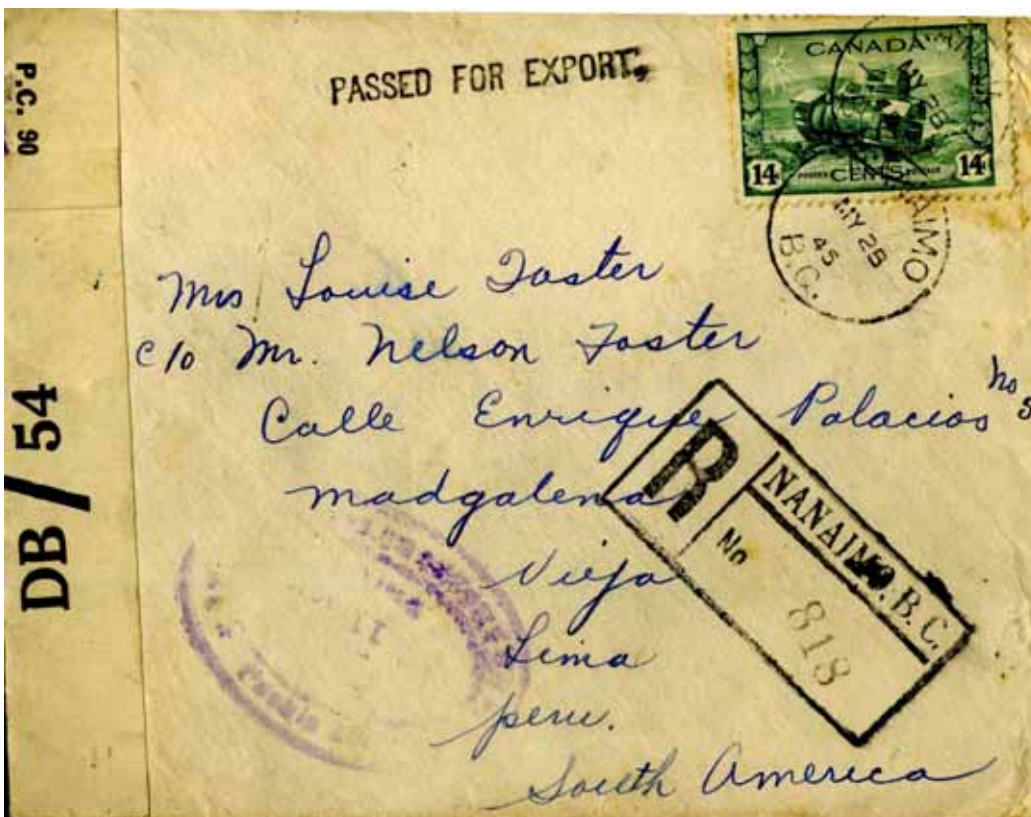 P.C. 90
DB/54
PASSED FOR EXPORT
CANADA
14 CENTS 14
POSTES POSTAGE
MY 28
NANAIMO
MY 28
45
B.C.
Mrs Louise Foster
c/o Mr. Nelson Foster
Calle Enrique Palacios No
Madgalena
Vieja
Lima
Peru.
South America
R
NANAIMO. B. C.
No
818